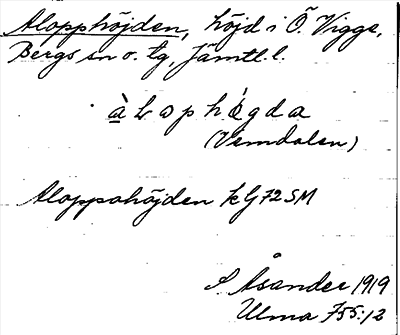 Alopphöjden, höjd i Ö. Vigge,
Bergs sn o. tg, Jämtl. l.
àLɔphǿgda
(Vemdalen)
Aloppahöjden kG 72 SM
S. Åsander 1919
Ulma 755:12